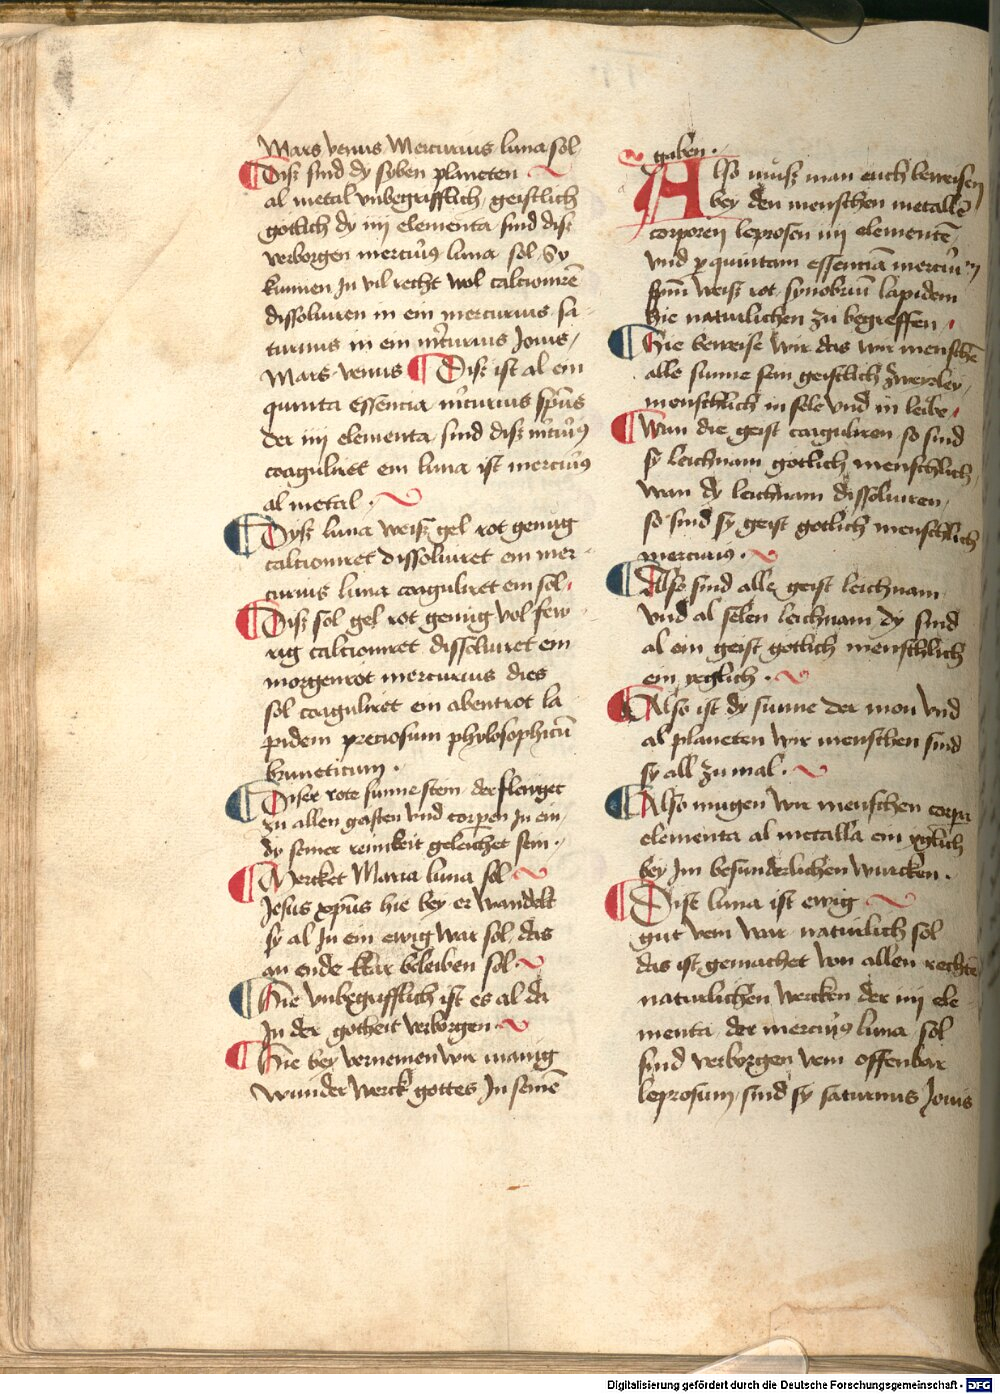 Mars venus Mercurius luna sol
Disz sind dy syben planeten
al metal vnbegrifflich, geistlich
gotlich dy iiij elementa sind disz
verborgen mercurius luna sol. Sy
kunnen In vil recht wol calcionirē
dissoluiren in ein mercurius sa
turnus in ein mercurius Jouis,
Mars venus Disz ist al ein
quinta essencia mercurius spūs
der iiij elementa sind disz mercurius
coaguliret ein luna ist mercurius
al metal.
Dysz luna weisz gel rot genug
calcioniret dissoluiret ein mer
curius luna coaguliret ein sol.
Disz sol gel rot genug vol few
rig calcioniret dissoluiret ein
morgenrot mercurius dies
sol coaguliret ein abentrot la
pidem preciosum phylosophicū
bruneticum.
Diser rote sunne stein der flewget
zu allen geisten vnd corpern In ein
dy seiner reinikeit geleichet sein.
Mercket Maria luna sol
Jesus xpūs hie bey er wandelt
sy al In ein ewig war sol, das
an ende klar beleiben sol
Hie vnbegrifflich ist es al da
In der gotheit verborgen
Hie bey vernemen wir manig
wunder werck gottes In seinē
gaben.
Also müsz man euch beweisen
bey den menschen metallē
corporen leprosen iiij elementē,
vnd quintam essenciā mercurium
spm̄ weisz rot, synobriū lapidem
Hie naturlichen zu begreffen
Hie beweise wir das wir menschē
alle sunne sein geistlich zwerley,
menschlich in sele vnd in leibe,
Wan die geist coaguliren so sind
sy leichnam gotlich menschlich,
Wan dy leichnam dissoluiren,
so sind sy geist gotlich menschlich
mercurius.
Also sind alle geist leichnam
vnd al selen leichnam dy sind
al ein geist gotlich menschlich
ein yeglich.
Also ist dy sunne der mon vnd
al planeten wir menschen sind
sy all zu mal.
Also mugen wir menschen corpora
elementa al metalla ein yglich
bey Im besunderlichen wurcken.
Disz luna ist ewig
gut vein war naturlich sol
das ist gemachet von allen rechtē
naturlichen wercken der iiij ele
menta der mercurius luna sol
sind verborgen vein offenbar
leprosum, sind sy saturnus Jouis